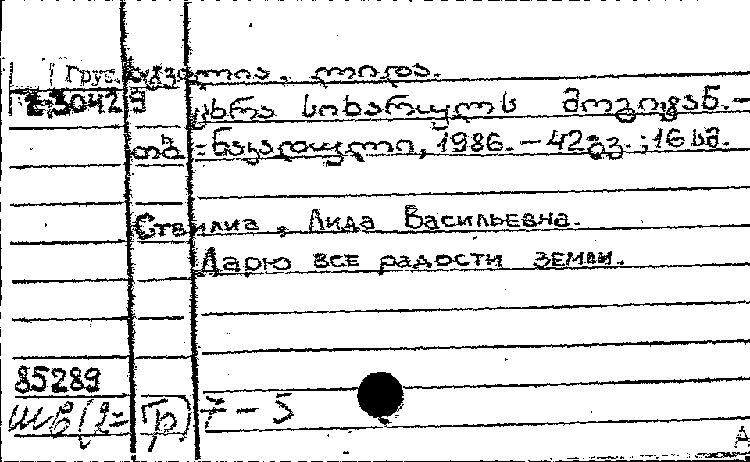 Груз. სტვილია, ლიდა.
2304 29 ცხრა სიხარულს მოგიტან. –
თბ : ნაკადული, 1986. – 42გვ. ; 16 სმ.
Ствилиа, Лида Васильевна.
Дарю все радости земли.
85289
Ш6(2=Гр)7-5
А